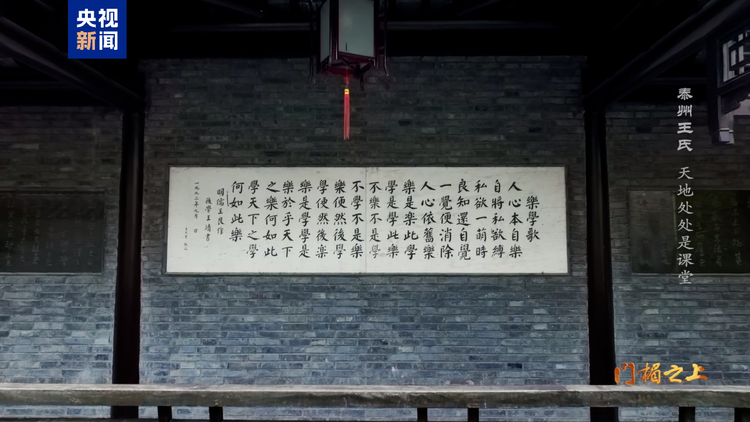 央视
新闻
樂學歌
人心本自樂
自將私欲縛
私欲一萌時
良知還自覺
一覺便消除
人心依舊樂
樂是樂此學
學是學此樂
不樂不是學
不學不是樂
樂便然後學
學便然後樂
樂是學學是
樂於乎天下
之樂何如此
學天下之學
何如此樂
明儒王艮作
後學王靖書
泰州王氏 天地处处是课堂
门楣之上